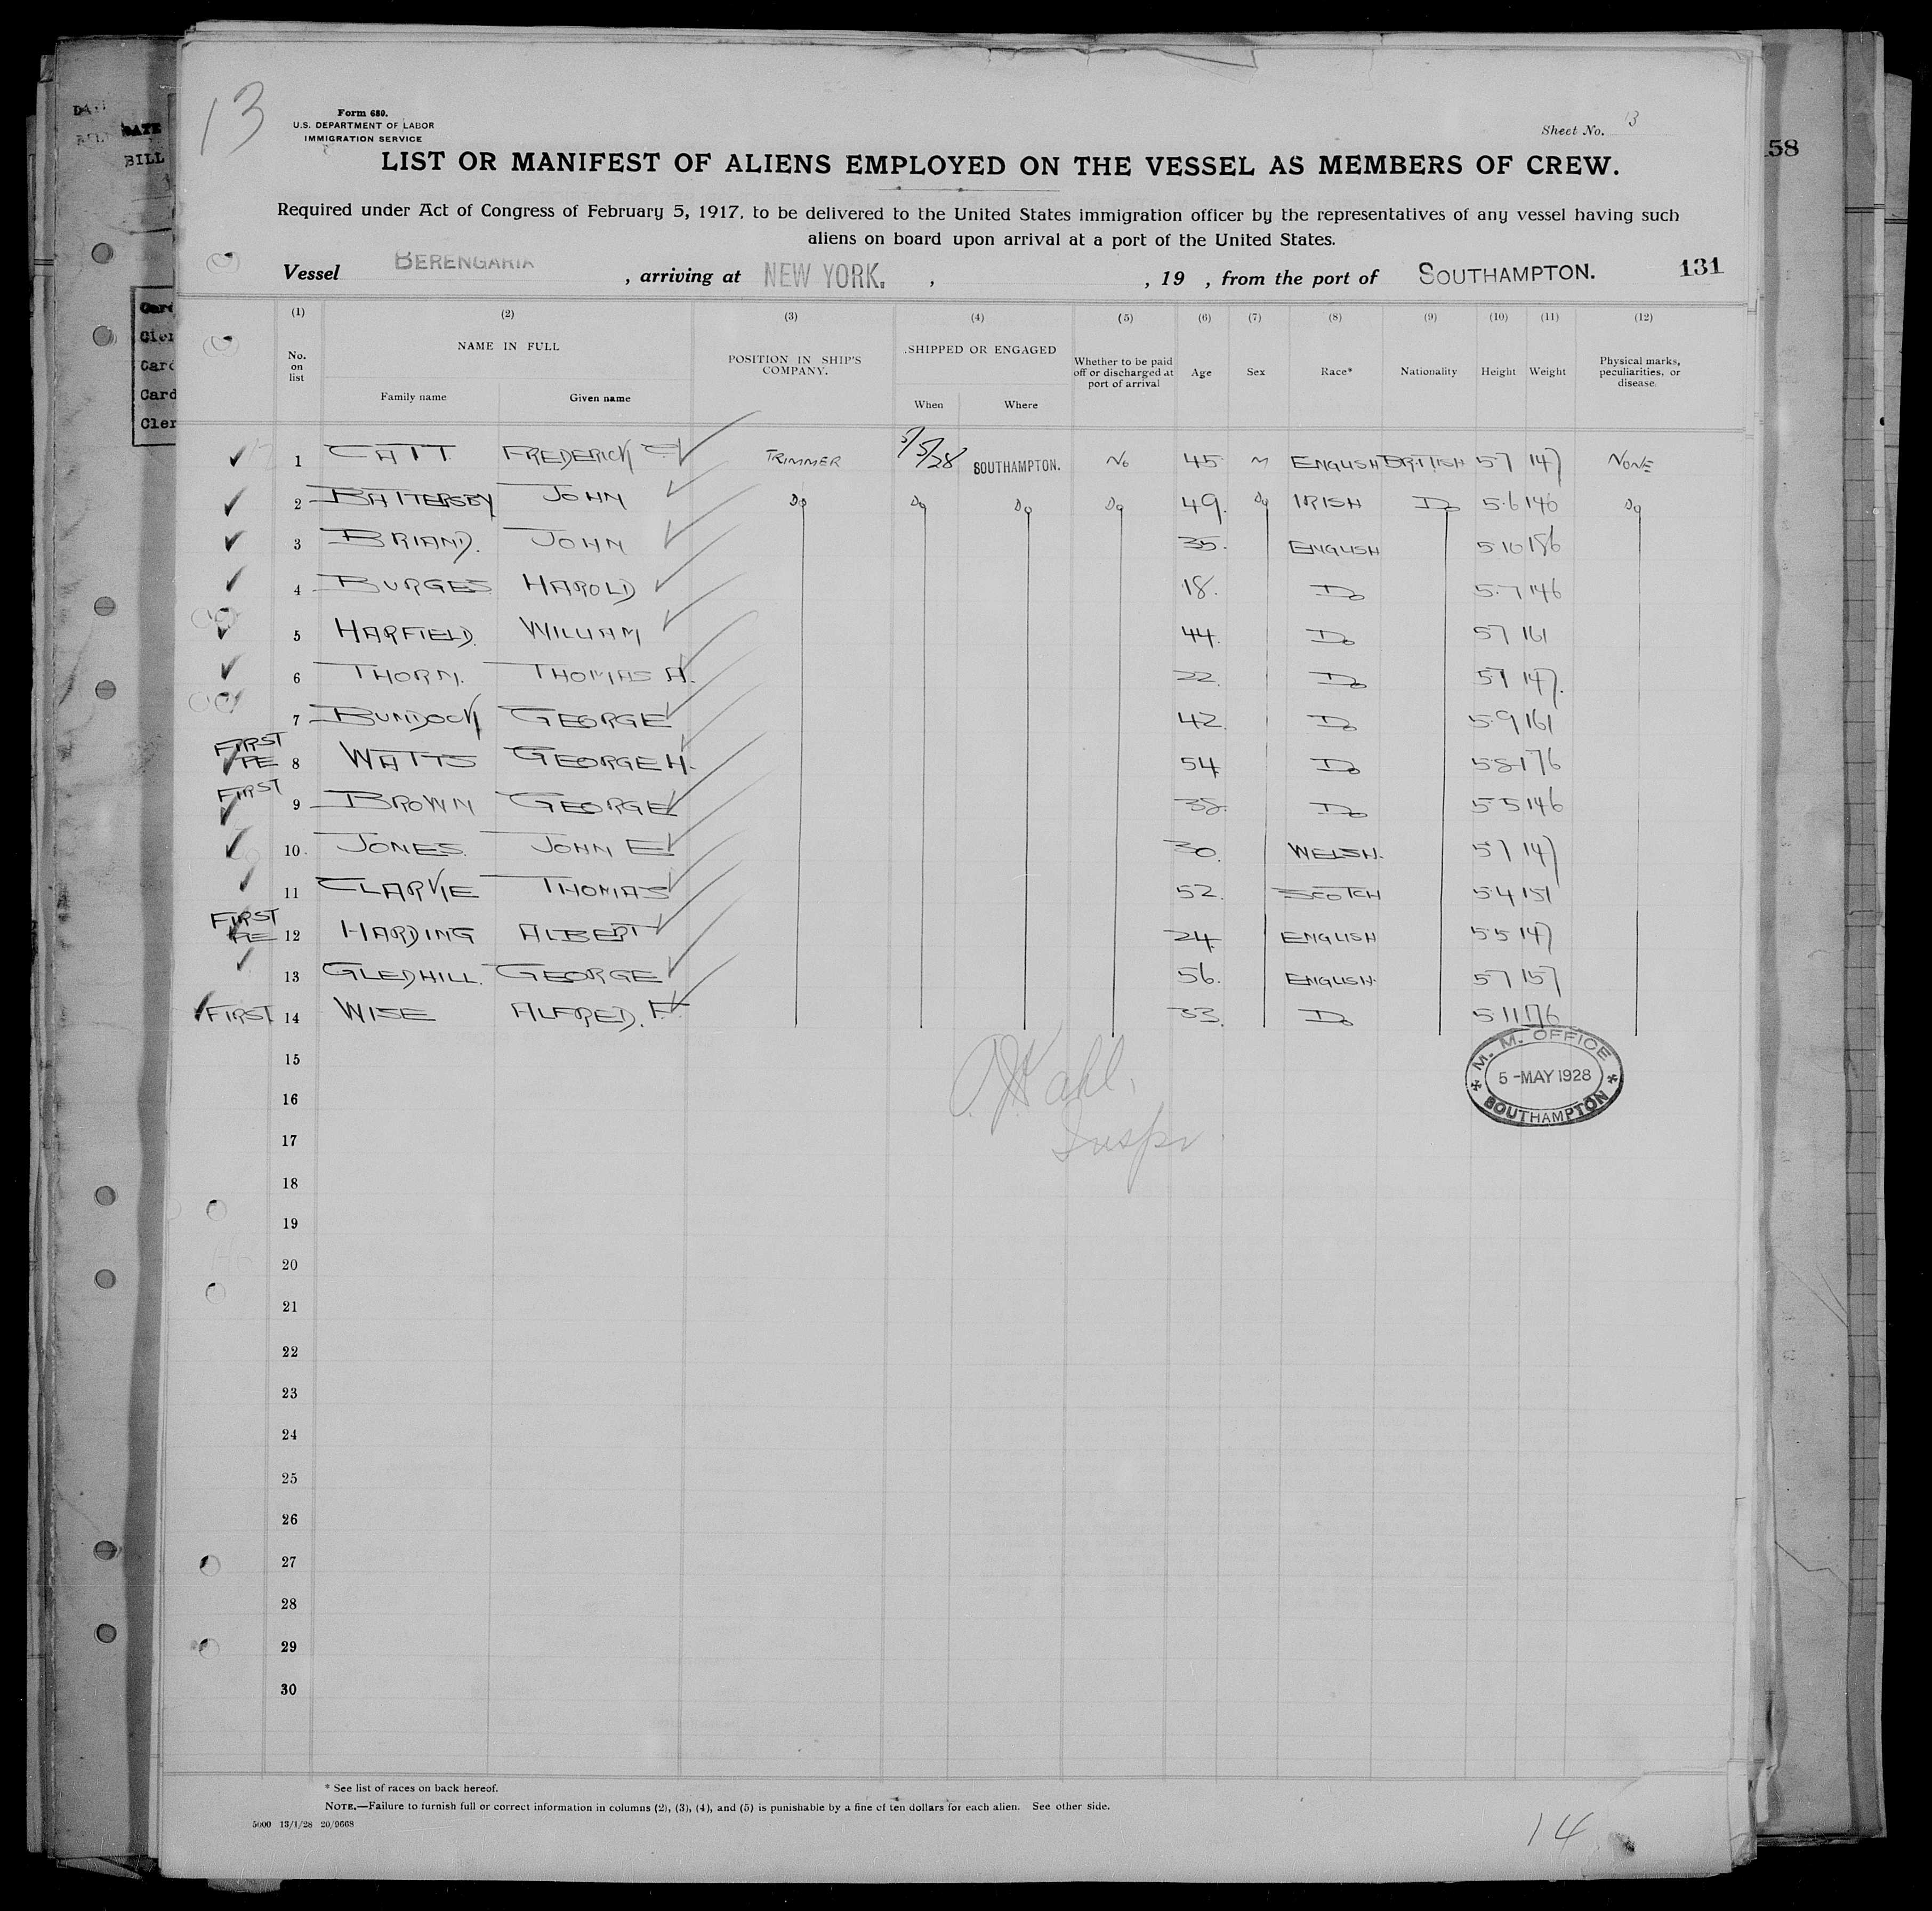 13
Form 680.
U.S. DEPARTMENT OF LABOR
IMMIGRATION SERVICE
Sheet No. 13
LIST OR MANIFEST OF ALIENS EMPLOYED ON THE VESSEL AS MEMBERS OF CREW.
Required under Act of Congress of February 5, 1917, to be delivered to the United States immigration officer by the representatives of any vessel having such
aliens on board upon arrival at a port of the United States.
Vessel BERENGARIA , arriving at NEW YORK. , , 19 , from the port of SOUTHAMPTON. 131
58
DATE
BILL
(1) (2) (3) (4) (5) (6) (7) (8) (9) (10) (11) (12)
No. on list
NAME IN FULL
Family name Given name
POSITION IN SHIP'S COMPANY.
SHIPPED OR ENGAGED
When Where
Whether to be paid off or discharged at port of arrival
Age Sex Race* Nationality Height Weight
Physical marks, peculiarities, or disease.
1 CATT FREDERICK C TRIMMER 5/5/28 SOUTHAMPTON. No 45 M ENGLISH BRITISH 5 7 147 NONE
2 BATTERSBY JOHN Do Do Do Do 49. Do IRISH Do 5.6 140 Do
3 BRIAND. JOHN 35. ENGLISH 5 10 186
4 BURGES HAROLD 18. Do 5.7 146
5 HARFIELD. WILLIAM 44. Do 5 7 161
6 THORN. THOMAS A. 22. Do 5 7 147.
7 BUNDOCK GEORGE 42. Do 5.9 161
FIRST 8 WATTS GEORGE H. 54 Do 5 8 176
FIRST 9 BROWN GEORGE 38. Do 5 5 146
10 JONES. JOHN E 30. WELSH. 5 7 147
11 CLARKE THOMAS 52. SCOTCH 5.4 151
FIRST 12 HARDING ALBERT 24. ENGLISH 5 5 147
13 GLEDHILL. GEORGE 56. ENGLISH. 5 7 157
FIRST 14 WISE ALFRED. F. 33. Do 5 11 176
15
16
17
18
19
20
21
22
23
24
25
26
27
28
29
30
Inspr
M. M. OFFICE
5 -MAY 1928
SOUTHAMPTON
* See list of races on back hereof.
NOTE.—Failure to furnish full or correct information in columns (2), (3), (4), and (5) is punishable by a fine of ten dollars for each alien. See other side.
5000 13/1/28 20/9668
14